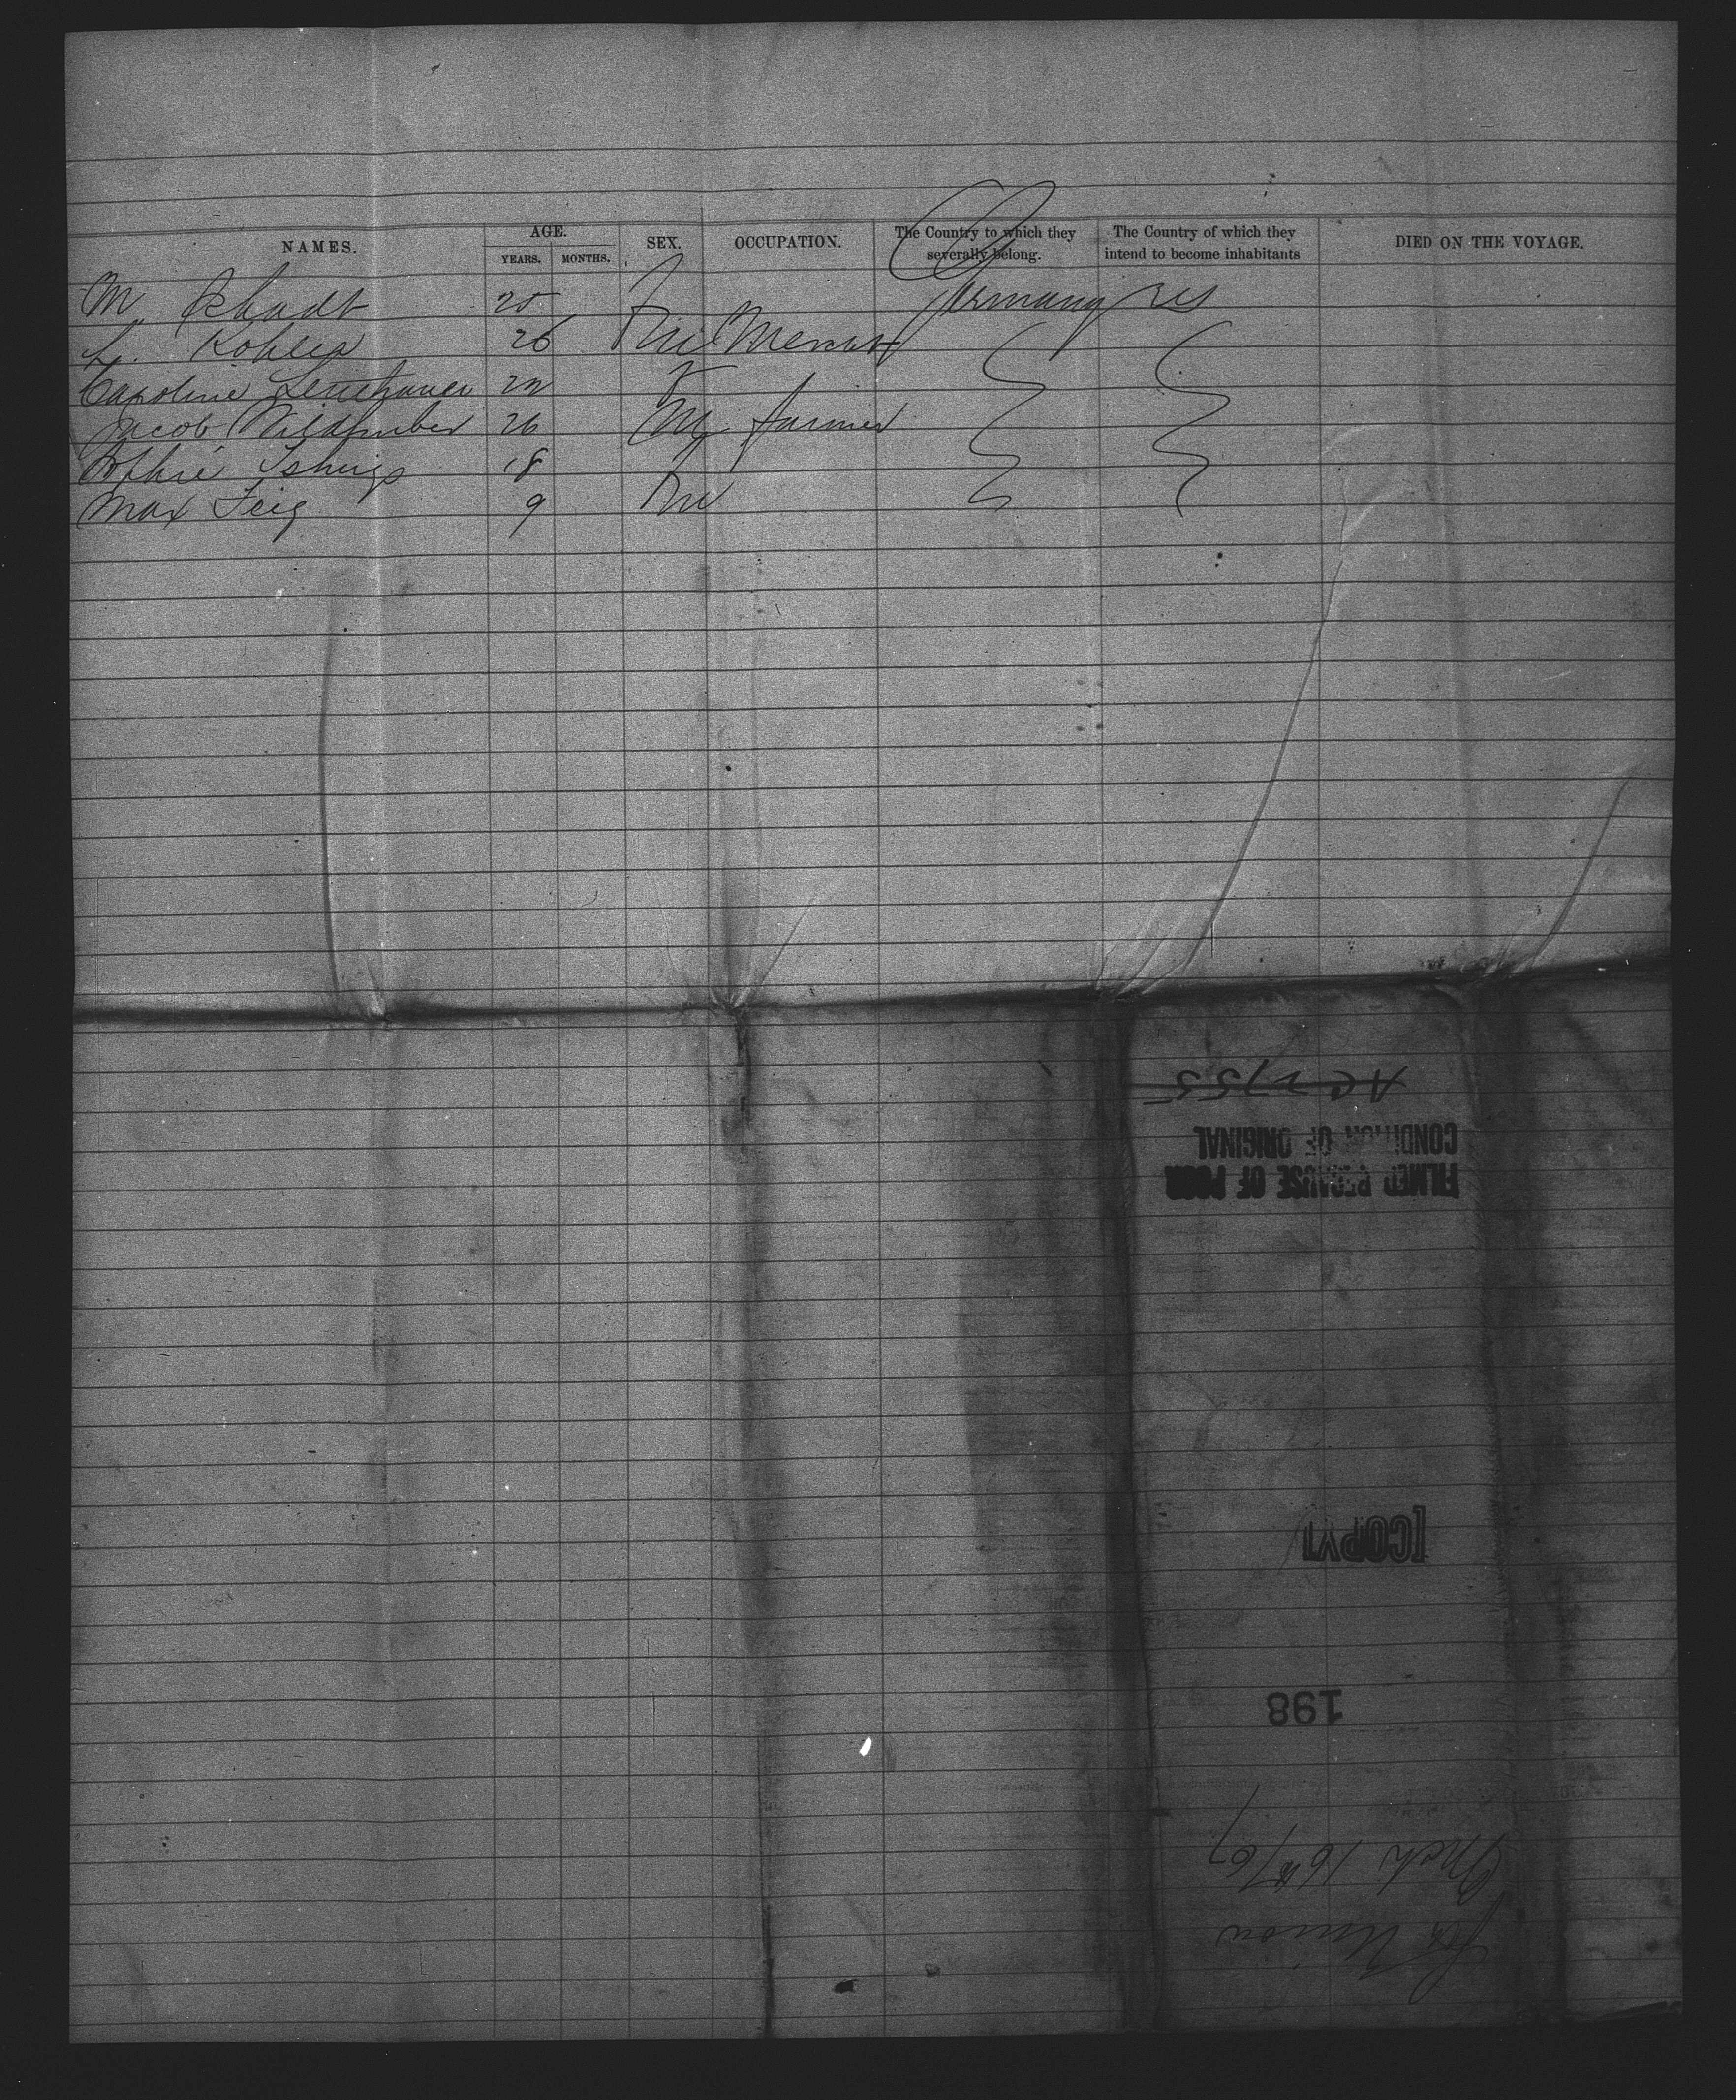 NAMES. AGE. YEARS. MONTHS. SEX. OCCUPATION. The Country to which they severally belong. The Country of which they intend to become inhabitants DIED ON THE VOYAGE.
M. 25 Germany US
L. Kohler 26 M Merchant
Caroline 22 F
Jacob 26 M farmer
Sophie 18
Max Feig 9 M
FILMED BECAUSE OF POOR
CONDITION OF ORIGINAL
[COPY]
198
Union
Mch 16th/67